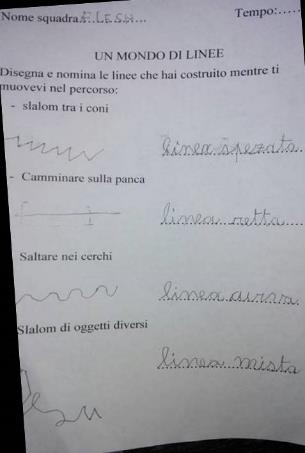 Nome squadra FLESH...
Tempo:.....
UN MONDO DI LINEE
Disegna e nomina le linee che hai costruito mentre ti
muovevi nel percorso:
- slalom tra i coni
linea spezata
- Camminare sulla panca
linea retta
Saltare nei cerchi
linea
Slalom di oggetti diversi
linea mista